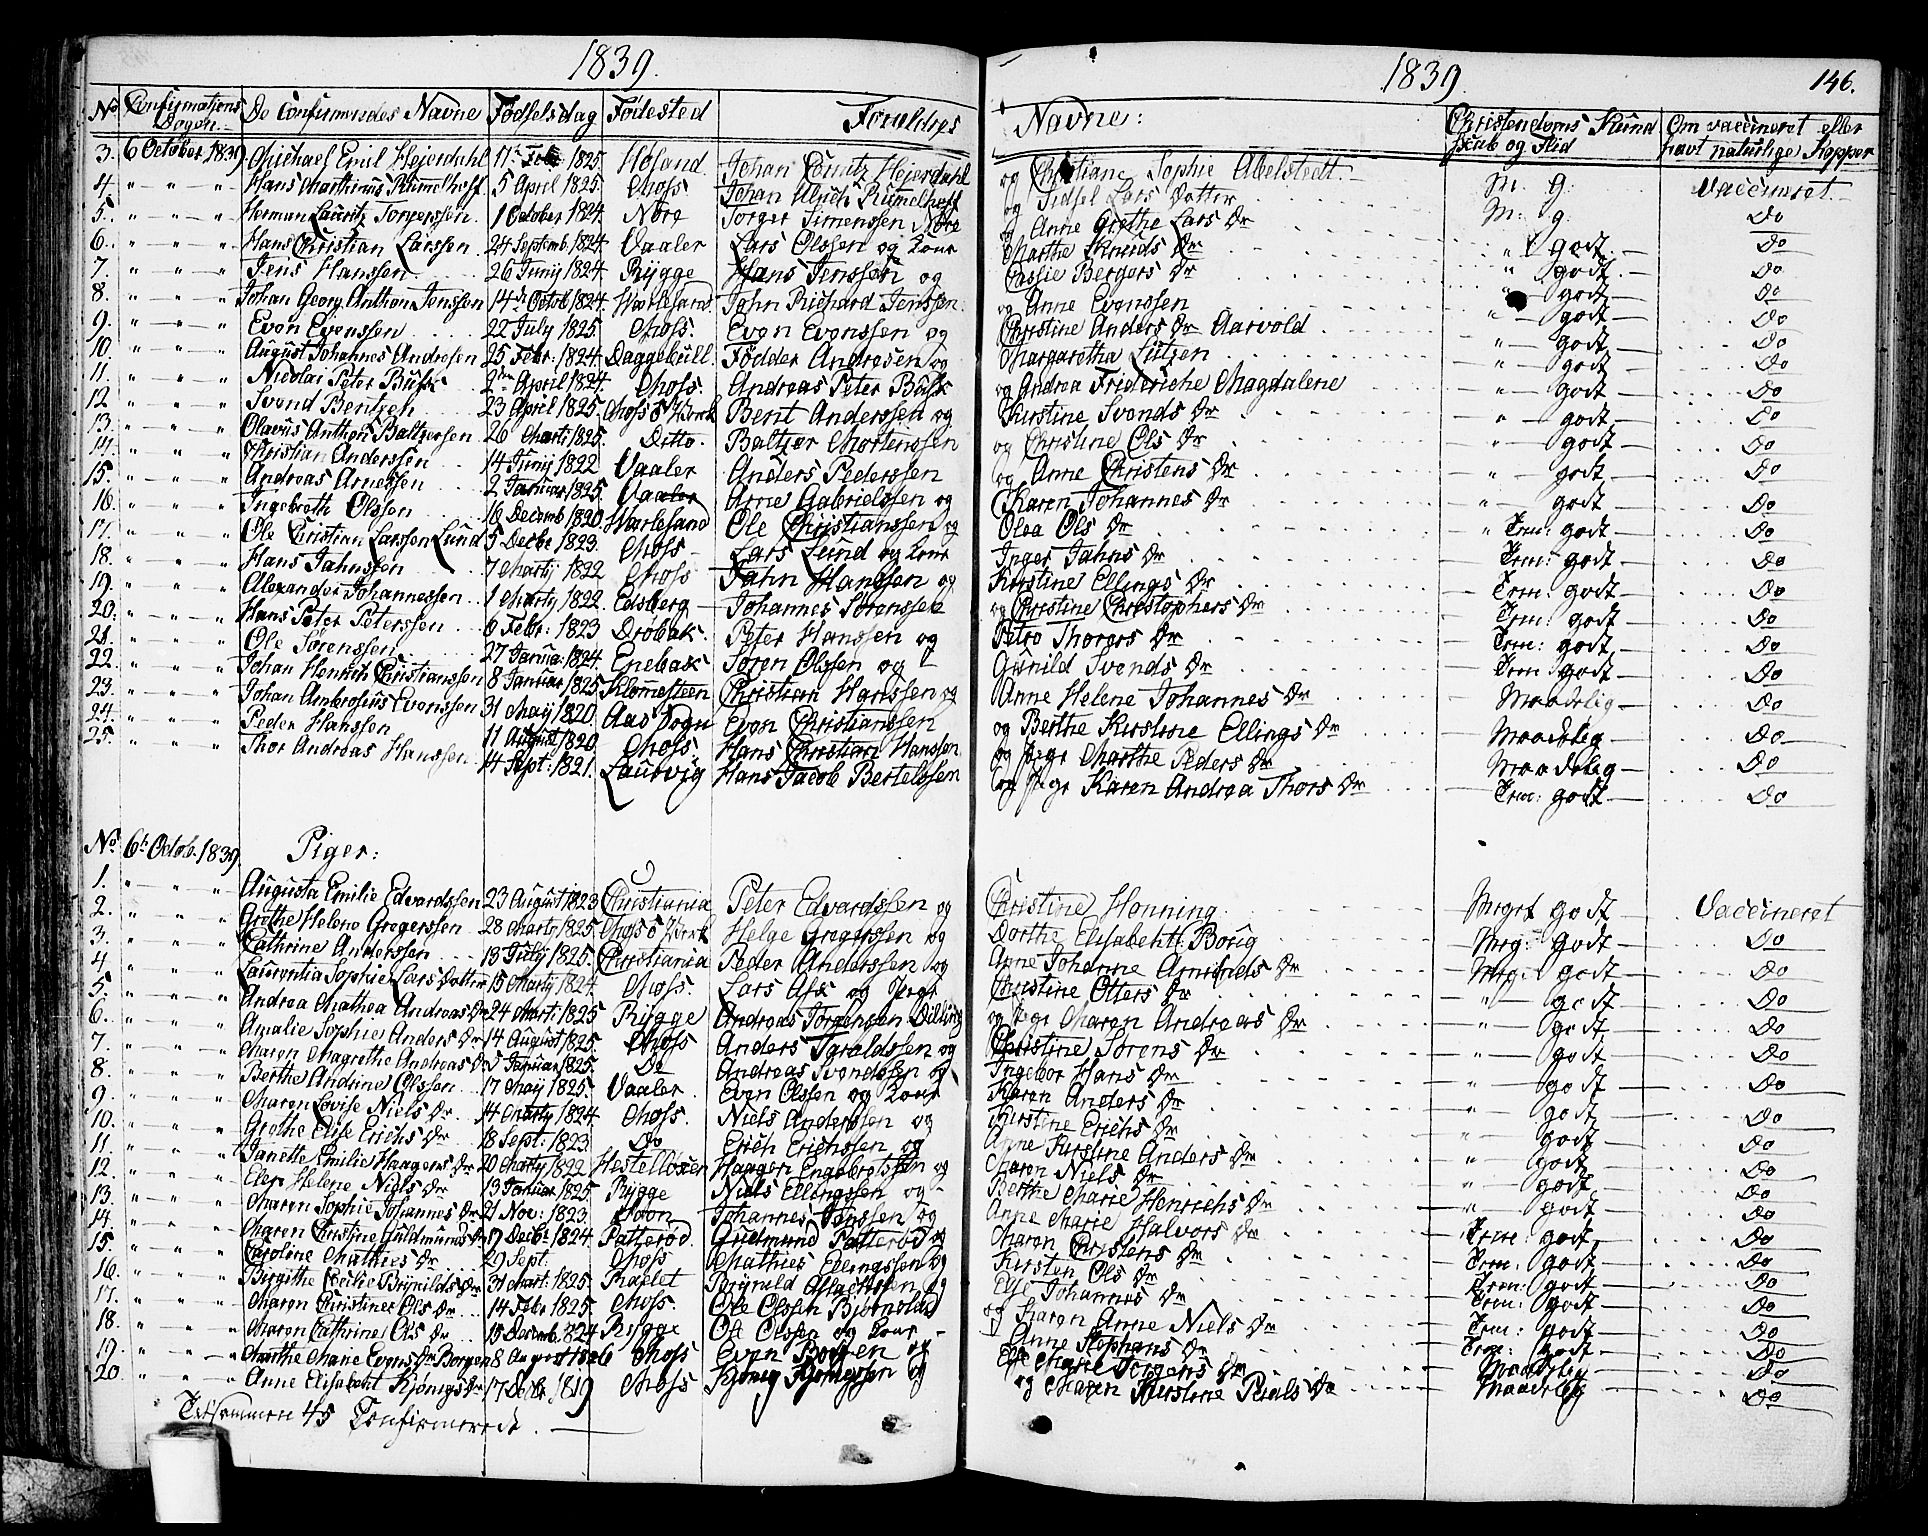 1839.
1839.
146.
No Confirmations Dagen De Confirmendes Navne Fødselsdag Fødested Forældres Navne: Christendoms Kundskab og Flid Om vaccineret eller havt naturlige Kopper
3. 6 October 1839. Michael Emil Hejerdahl 17 Febr 1825. Høland Johan Hejerdahl og Christiane Sophie Abelstedt. M. g. Vaccineret
4. " " " Hans Marthinus Rumelhoff 5 April 1825. Moss Johan Ulrich Rumelhoff og Sidsel Lars Datter M. g. Do
5. " " " Herman Lauritz Torgerssen 1 October 1824. Nore Torger Simenssen Nore og Anne Grethe Lars Dr " godt Do
6. " " " Hans Christian Larssen 24 Septemb. 1824. Vaaler Lars Olssen og Kone Marthe Knuds Dr " godt Do
7. " " " Jens Hanssen 26 Junij 1824. Rygge Hans Jenssen og Bergers Dr " godt Do
8. " " " Johan Georg Anthon Jenssen 14 Octob 1824. John Richard Jenssen og Anne Evenssen " godt Do
9. " " " Even Evenssen 22 July 1825. Moss. Even Evenssen og Christine Anders Dr Aarvold " godt Do
10. " " " August Johannes Andresen 25 Febr: 1824. Daggebüll Fødder Andresen og Margaretha Lützen " godt Do
11. " " " Nicolai Peter Busk 2 April 1824. Moss. Andreas Peter Busk og Andrea Frideriche Magdalene " godt Do
12 " " " Svend Bentzen 23 April 1825. Moss Bent Anderssen og Kirstine Svends Dr " godt Do
13. " " " Olavus Anthon Baltzerssen 26 Marts 1825. Ditto. Baltzer Mortenssen og Christine Ols Dr " godt Do
14. " " " Christian Anderssen 14 Junij 1822 Vaaler Anders Pederssen og Anne Christens Dr " godt Do
15. " " " Andreas Arnessen 2 Januar 1825. Vaaler Arne Gabrielssen og Karen Johannes Dr " godt Do
16. " " " Ingebreth Olssen 16 Decemb 1820. Ole Christianssen og Olea Ols Dr " Trm: godt Do
17. " " " Ole Christian Larssen Lund 5 Decbr 1823. Moss Lars Lund og Kone Inger Jahns Dr Trm: godt Do
18. " " " Hans Jahnssen 7 Martij 1822 Moss Jahn Hanssen og Kirstine Ellings Dr Trm: godt Do
19. " " " Alexander Johannessen 1 Martij 1822. Edsberg Johannes Sørenssen og Christine Christophers Dr Trm: godt Do
20. " " " Hans Peter Peterssen 6 Febr: 1823 Drøbak. Peter Hanssen og Petra Thorers Dr Trm: godt Do
21. " " " Ole Sørenssen 27 Janua: 1824. Enebak Søren Olssen og Gunild Svends Dr Trm: godt Do
22 " " " Johan Henrich Christianssen 8 Januar 1825 Klommesteen Christian Hanssen og Anne Helene Johannes Dr Maadelig Do
23. " " " Johan Ambrosius Evenssen 31 Maij 1820. Aas Sogn Even Christianssen og Berthe Kirstine Ellings Dr Maadelig Do
24. " " " Peder Hanssen 11 August 1820. Moss Hans Christian Hanssen og Pige Marthe Peders Dr Maadelig Do
25. " " " Thor Andreas Hanssen 14 Sept: 1821. Laurvig Hans Jacob Bertelssen og Pige Karen Andrea Thors Dr Trm: godt Do
No 6 Octob. 1839. Piger:
1. " " " Augusta Emilie Edvardssen 23 August 1823 Christiania Peter Edvardssen og Christine Henning Meget godt Vaccineret
2. " " " Grethe Helene Gregerssen 28 Marts 1825. Moss Helge Gregerssen og Dorthe Elisabeth Borig Meg: godt Do
3. " " " Cathrine Anderssen 13 July 1825. Christiania Peder Anderssen og Anne Johanne Amunds Dr Meg: godt Do
4. " " " Laurentia Sophie Lars Datter 15 Martij 1824. Moss. Lars Ask og Pige Christine Otters Dr " godt Do
5. " " " Andrea Mathea Andreas Dr 24 Marts 1825 Rygge Andreas Jørgensen Dilling og Pige Maren Andreas Dr " godt Do
6. " " " Amalie Sophie Anders Dr 14 August 1825. Moss Anders Taraldssen og Christine Sørens Dr " godt Do
7. " " " Maren Magrethe Andreas Dr 5 Januar 1825. Do Andreas Svendssen og Ingebor Hans Dr " godt Do
8. " " " Berthe Andrine Olssen 17 Maij 1825. Vaaler Even Olssen og Kone Karen Anders Dr " godt Do
9. " " " Maren Lovise Niels Dr 14 Martij 1824. Moss. Niels Anderssen og Kirstine Erichs Dr " godt Do
10. " " " Grethe Elise Erichs Dr 18 Sept: 1823. Do Erich Erichssen og Anne Kirstine Anders Dr " godt Do
11. " " " Janette Emilie Haagens Dr 20 Martij 1822 Hestelløsen Haagen Engebretssen og Maren Niels Dr " godt Do
12. " " " Elen Helene Niels Dr 13 Januar 1825. Rygge Niels Ellingssen og Berthe Marie Henrichs Dr " godt Do
13. " " " Maren Sophie Johannes Dr 21 Nov: 1823. Johannes Jenssen og Anne Marie Halvors Dr " godt Do
14. " " " Maren Christine Guldmunds Dr 17 Decbr 1824. Patterød. Gudmund Patterød og Maren Christens Dr Trm: godt Do
15. " " " Caroline Mathies Dr 29 Sept: Moss. Mathies Ellingssen og Kirsten Ols Dr Trm: godt Do
16. " " " Birgithe Cecilie Brynilds Dr 31 Mart: 1825. Raelet Brynild Aslachssen og Else Johannes Dr Trm: godt Do
17. " " " Maren Christine Ols Dr 14 Febr 1825. Moss. Ole Olssen og Karen Anne Niels Dr Trm: godt Do
18. " " " Maren Cathrine Ols Dr 15 Decemb. 1824 Rygge Ole Olssen og Kone Anne Stephans Dr Trm: godt Do
19. " " " Marthe Marie Evens Dr Borgen 8 August Moss Even Borgen og Else Marie Jørgens Dr Maadelig Do
20 " " " Anne Elisabeth Kjønigs Dr 17 Decbr 1819 Moss og Maren Kirstine Dr Maadelig Do
Tilsammen 45 Confirmerede.